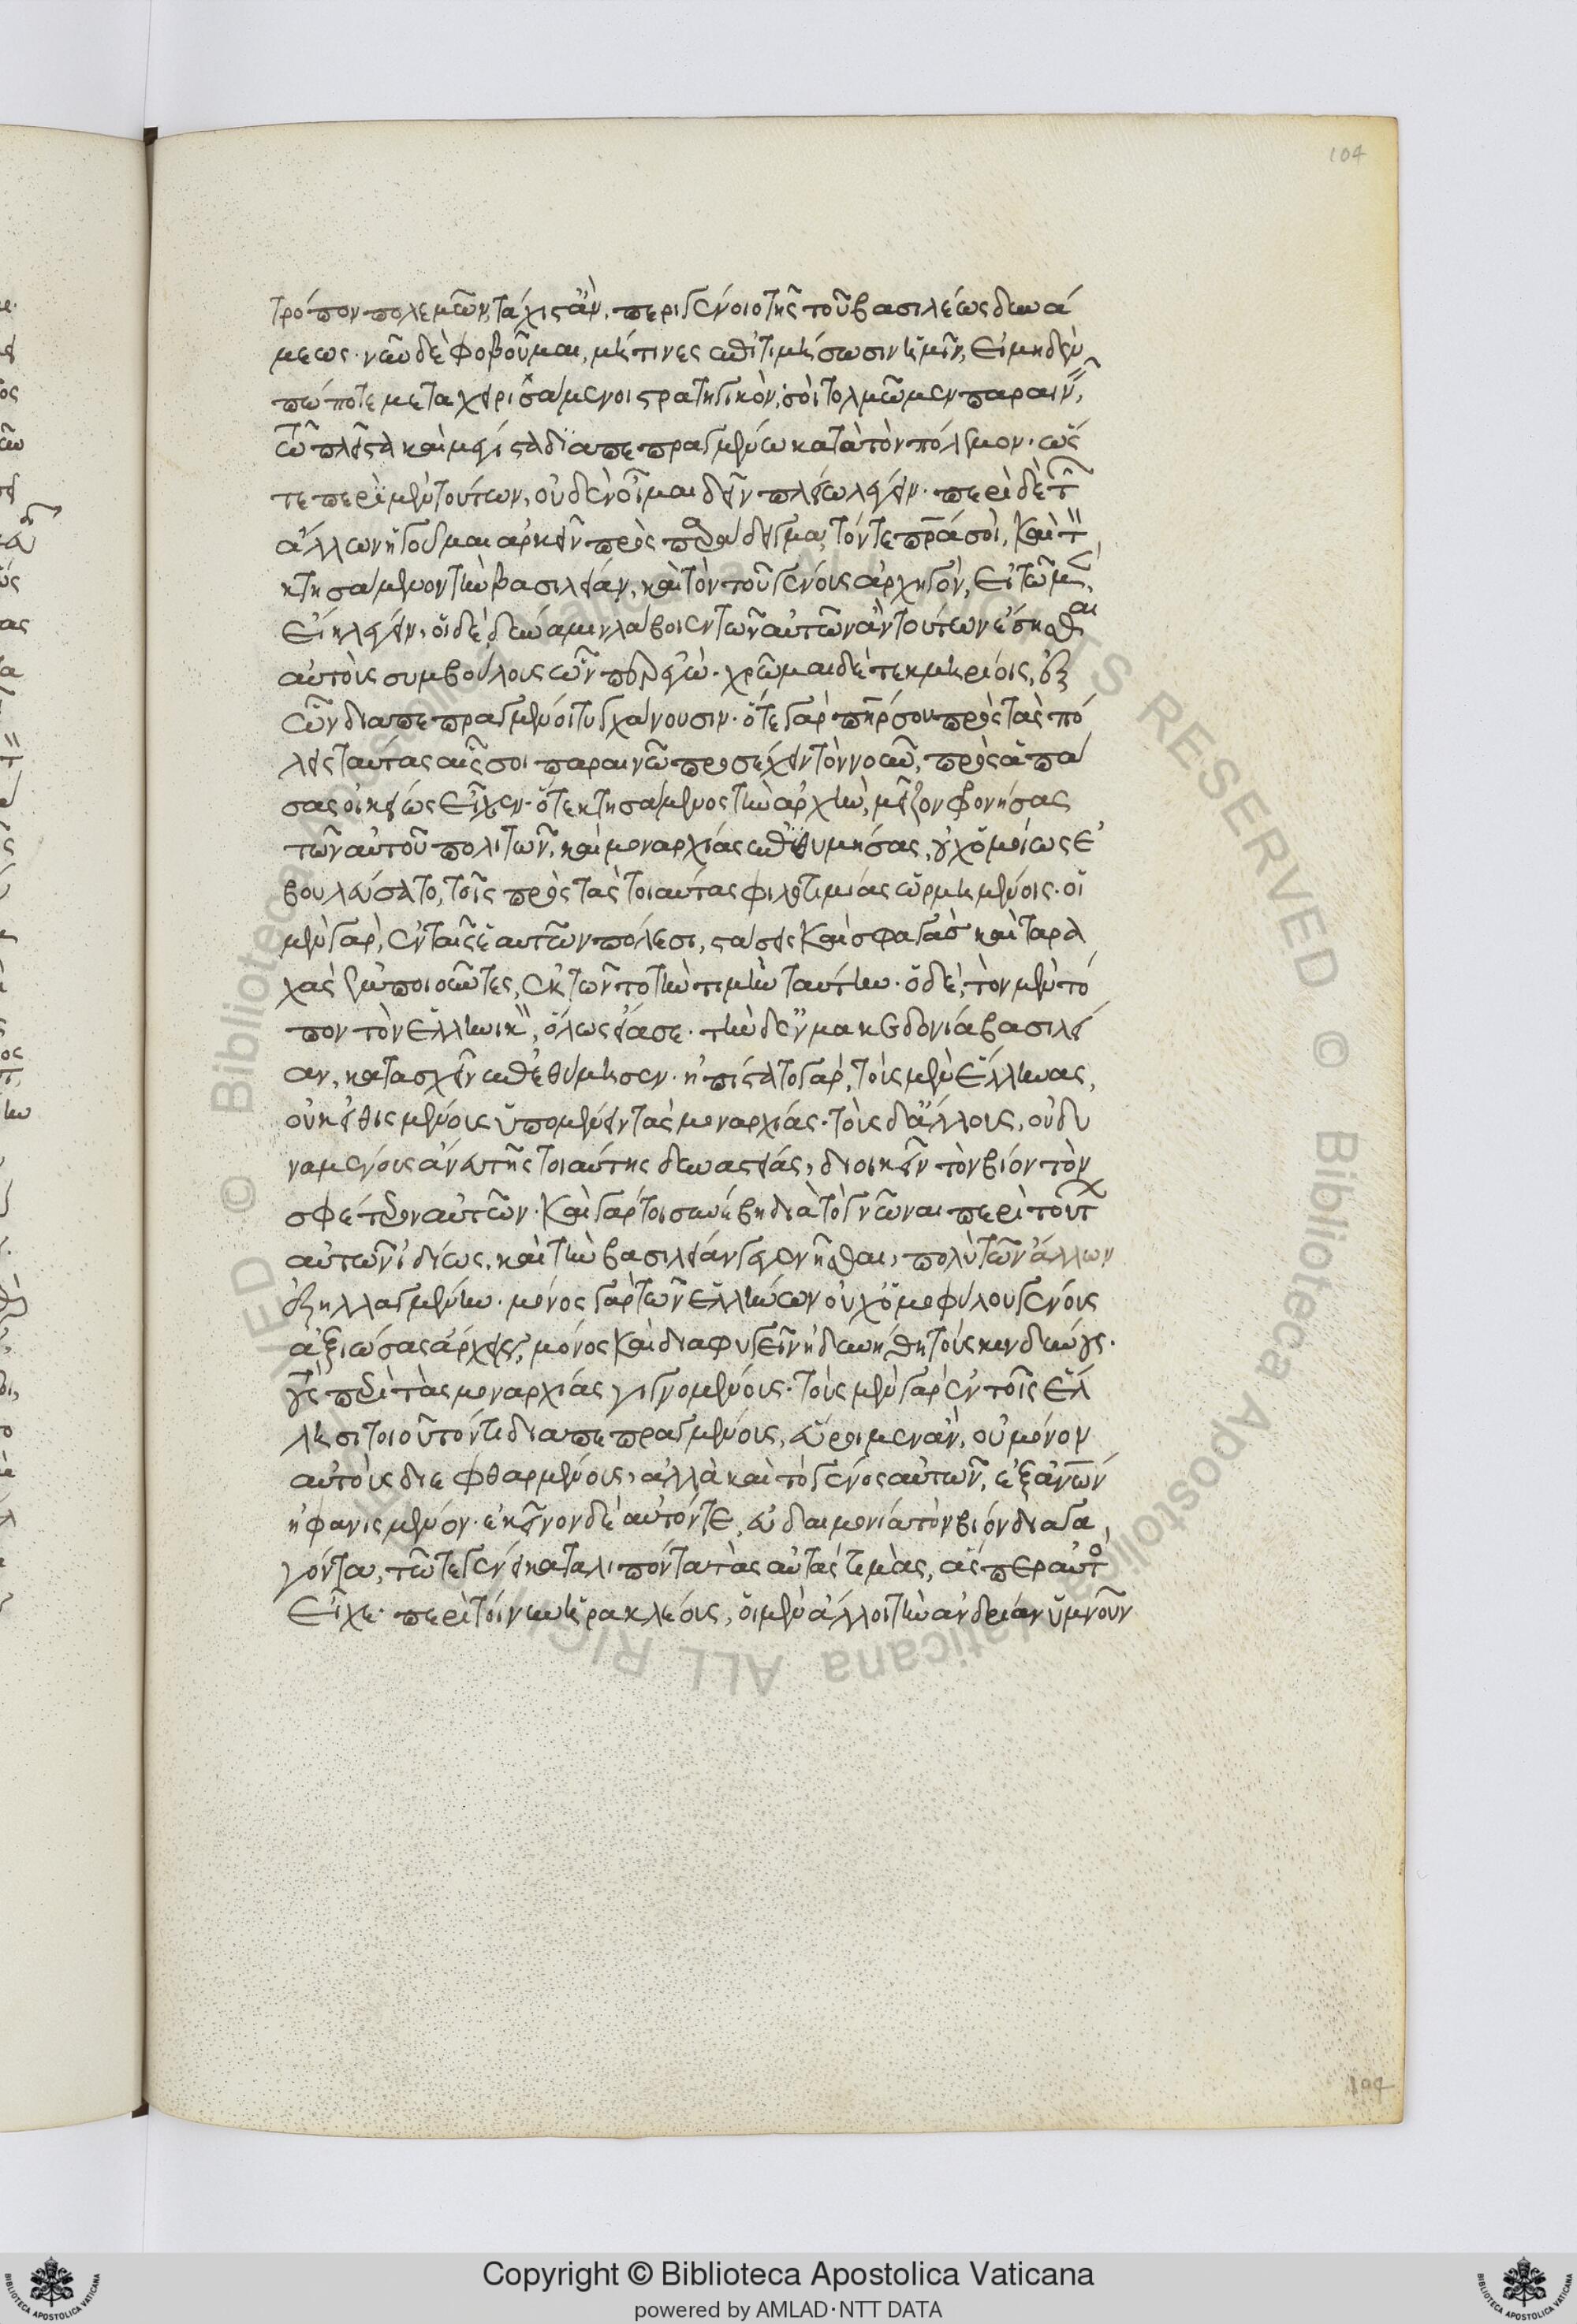 τρόπον πολεμῶν, τάχιστ' ἂν περιγένοιο τῆς τοῦ βασιλέως δυνά
μεως· νῦν δὲ φοβοῦμαι, μή τινες ἐπιτιμήσωσιν ἡμῖν, εἰ μηδὲν
πώποτε μεταχειρισάμενοι στρατηγικὸν, σοὶ τολμῶμεν παραινεῖν,
τῶ πλεῖστα καὶ μέγιστα διαπεπραγμένω κατὰ τὸν πόλεμον· ὥς
τε περὶ μὲν τούτων, οὐδὲν οἶμαι δεῖν πλείω λέγειν· περὶ δὲ τῶν
ἄλλων ἡγοῦμαι ἀρκεῖν πρὸς παράδειγμα, τόν τε πρα σοὶ, καὶ τὸν
κτησάμενον τὴν βασιλείαν, καὶ τὸν τοῦ γένους ἀρχηγόν, εἰ τῶ μὲν
εἴη λέγειν, οἱ δὲ δύναμιν λάβοιεν τῶν αὐτῶν ἂν τούτων
αὐτοὺς συμβούλους ὧν ἐγώ· χρῶμαι δὲ τεκμηρίοις, ἐξ
ὧν διαπεπραγμένοι τυγχάνουσιν· ὅτε γὰρ πηρ σου πρὸς τὰς πό
λεις ταύτας αἷς σοι παραινῶ προσέχειν τὸν νοῦν, πρὸς ἁπά
σας οἰκείως εἶχεν· ὅτε κτησάμενος τὴν ἀρχὴν, μεῖζον φρονήσας
τῶν αὐτοῦ πολιτῶν, καὶ μοναρχίας ἐπιθυμήσας, οὐχ ὁμοίως ἐ
βουλεύσατο, τοῖς πρὸς τὰς τοιαύτας φιλοτιμίας ὡρμημένοις· οἱ
μὲν γὰρ, ἐν ταῖς ἑαυτῶν πόλεσι, στάσεις καὶ σφαγὰς καὶ ταρα
χὰς ἐμποιοῦντες, ἐκτῶντο τὴν τιμὴν ταύτην· ὁ δὲ, τὸν μὲν τό
πον τὸν ἑλληνικὸν, ὅλως εἴασε· τὴν δ' ἐν μακεδονία βασιλεί
αν, κατασχεῖν ἐπεθύμησεν· ἠπίστατο γὰρ, τοὺς μὲν ἕλληνας,
οὐκ εἰθισμένους ὑπομένειν τὰς μοναρχίας· τοὺς δ' ἄλλους, οὐ δυ
ναμένους ἄνευ τῆς τοιαύτης δυναστείας, διοικεῖν τὸν βίον τὸν
σφέτερον αὐτῶν· καὶ γάρ τοι συνέβη διὰ τὸ γνῶναι περὶ τούτων
αὐτῶν ἰδίως, καὶ τὴν βασιλείαν γεγενῆσθαι, πολὺ τῶν ἄλλων
ἐξηλλαγμένην· μόνος γὰρ τῶν ἑλλήνων οὐχ ὁμοφύλου γένους
ἀξιώσας ἄρχειν, μόνος καὶ διαφυγεῖν ἠδυνήθη τοὺς κινδύνους·
τοὺς περὶ τὰς μοναρχίας γιγνομένους· τοὺς μὲν γὰρ ἐν τοῖς ἕλ
λησι τοιοῦτόν τι διαπεπραγμένους, εὕροιμεν ἂν, οὐ μόνον
αὐτοὺς διεφθαρμένους, ἀλλὰ καὶ τὸ γένος αὐτῶν, ἐξ ἀνων
ἠφανισμένον· ἐκεῖνον δὲ αὐτόν τε, εὐδαιμονία τὸν βίον διαγα
γόντα, τῶ τε γένει καταλιπόντα τὰς αὐτὰς τιμὰς, ἅσπερ αὐτὸς
εἶχε· περὶ τοίνυν ἡρακλέους, οἱ μὲν ἄλλοι τὴν ἀνδρίαν ὑμνοῦν